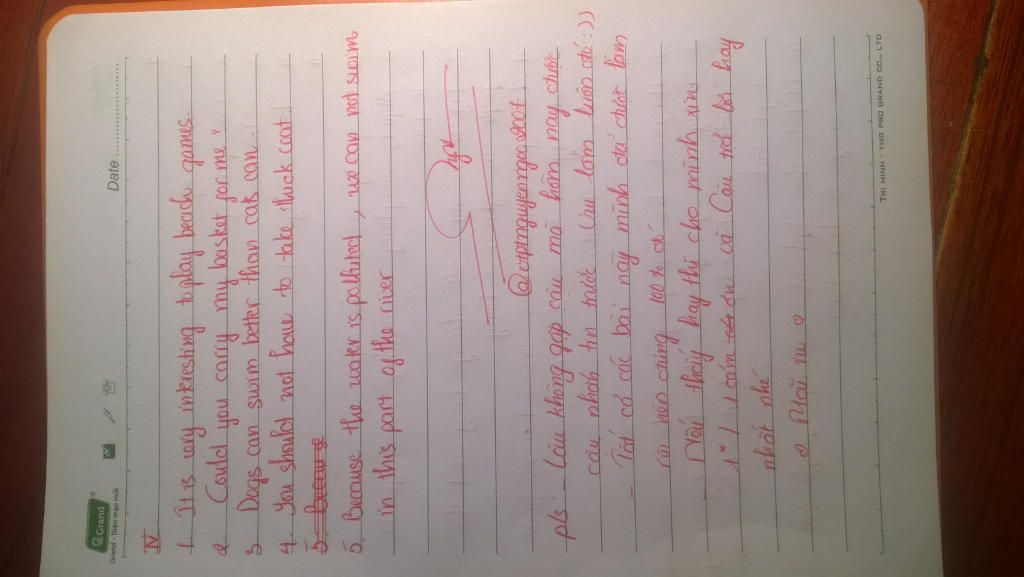 Grand
Grand - Diện mạo mới
Date
IV
1 It is very interesting to play beach games.
2 Could you carry my basket for me?
3 Dogs can swim better than cats can.
4. You should not have to take thick coat.
5 Because
5 Because the water is polluted, we can not swim
in this part of the river
@ctptnguyenngoc2007
p/s - Lâu không gặp cậu mà hôm nay được
câu nhắn tin trước. Vui lắm luôn đó :))
- Tất cả các bài này mình đã được làm
rồi nên đúng 100% đó
- Nếu thấy hay thì cho mình xin
1* 1 cảm ơn và Câu trả lời hay
nhất nhé.
TRI MINH - TNG PRO GRAND CO., LTD